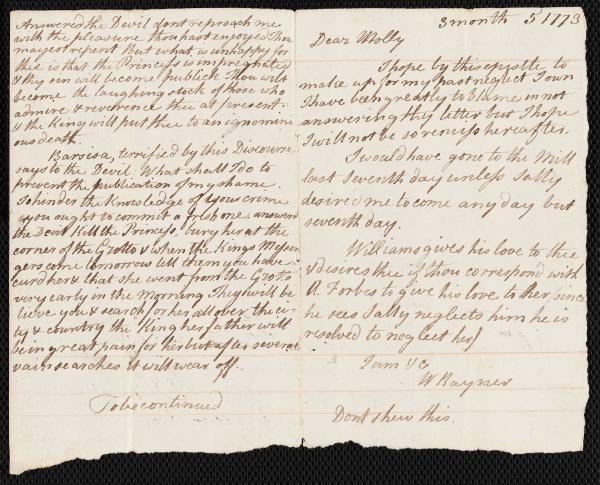 Answered the Devil dont reproach me
with the pleasure thou hast enjoyed Thou
mayest repent But what is unhappy for
thee is that the Princess is impregnated
& thy sin will become publick Thou wilt
become the laughing stock of those who
admire & reverence thee at present.
& the King will put thee to an ignomini
ous death.
Barsisa, terrified by this Discourse
says to the Devil. What shall I do to
prevent the publication of my shame.
To hinder the Knowledge of your crime
you ought to commit a fresh one, answerd
the Devil Kill the Princess, bury her at the
corner of the Grotto & when the Kings Messen
gers come tomorrow tell them you have
curd her & that she went from the Grotto
very early in the Morning They will be
lieve you & search for her all over the ci-
ty & country the King her father will
be in great pain for her but after several
vain searches it will wear off.
To be continued
3 month 5 1773
Dear Molly
I hope by this epistle to
make up for my past neglect I own
I have been greatly to blame in not
answering thy letter but I hope
I will not be so remiss hereafter.
I would have gone to the Mill
last Seventh day unless Sally
desired me to come any day but
seventh day.
Williams gives his love to thee
& desires thee if thou correspond with
A. Forbes to give his love to her (since
he sees Sally neglects him he is
resolved to neglect her)
I am &c
W Rayner
Dont shew this.